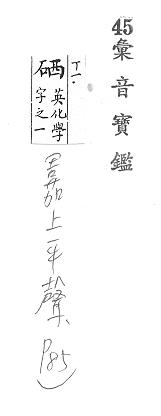 45彙音寶鑑
丁一·
硒 英化學字之一
嘉上平聲
P85